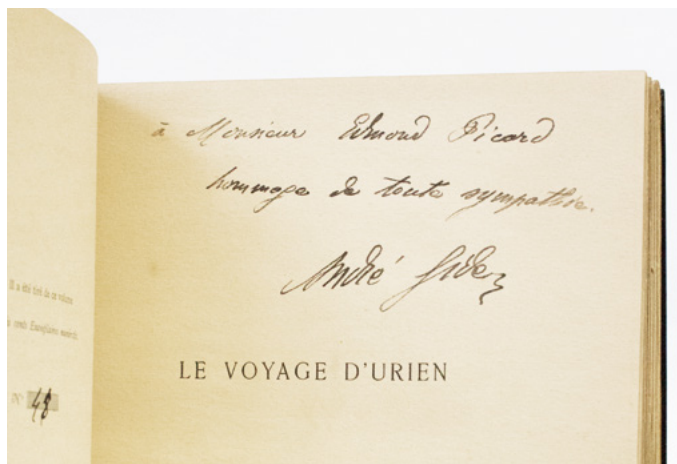 Il a été tiré de ce volume
cents Exemplaires numérotés
N° 48
à Monsieur Edmond Picard
hommage de toute sympathie.
André Gide
LE VOYAGE D'URIEN